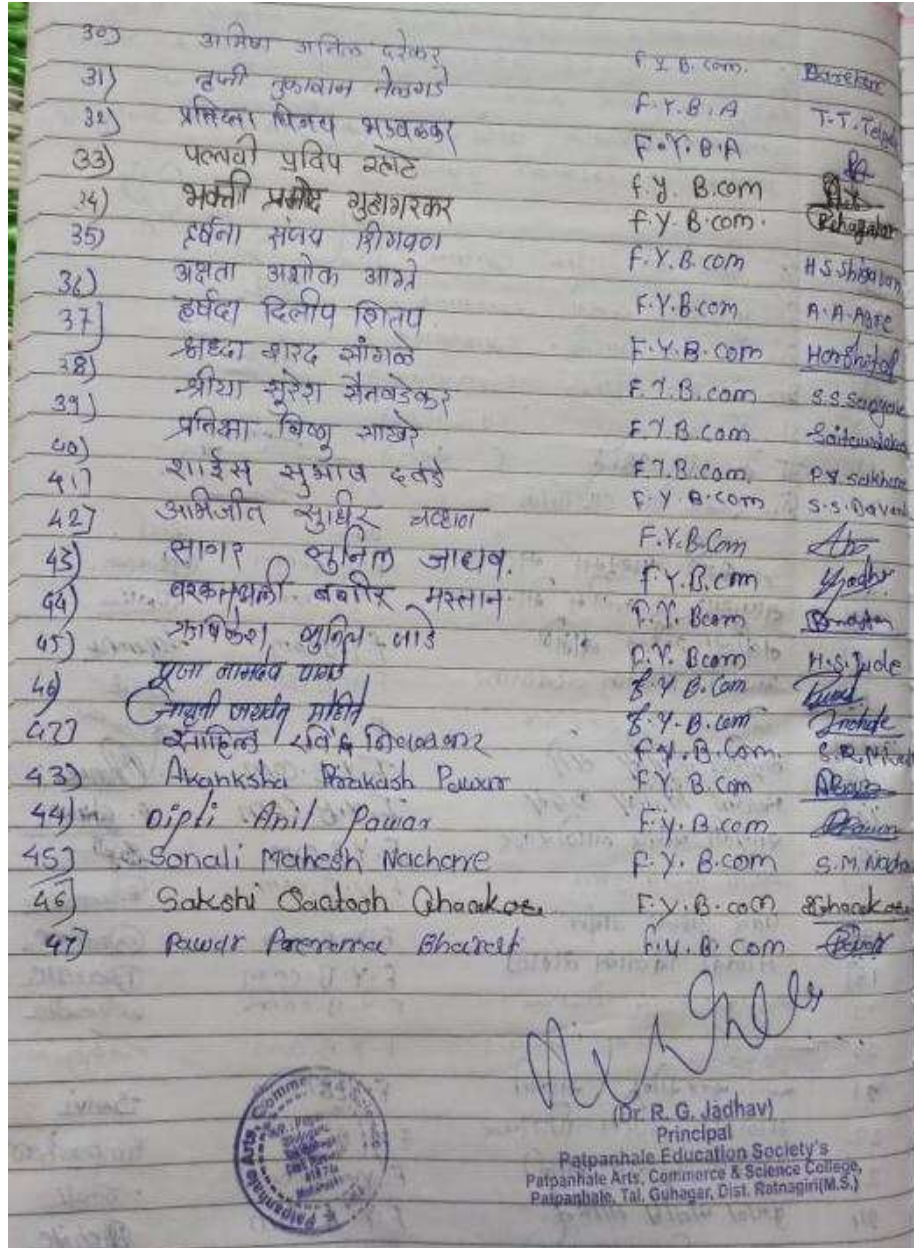 30) अमिषा अनिल दरेकर F Y B.com. Darekar
31) तृप्ती तुकाराम तेलगडे F.Y.B.A T.T.Telgade
32) प्रतिक्षा विजय भडवळकर F.Y.B.A
33) पल्लवी प्रदिप रहाटे F.Y. B.com
34) भक्ती प्रमोद गुहागरकर F.Y B.com.
35) हर्षना संजय शिगवण F.Y.B.com H S Shigavan
36) अक्षता अशोक आग्रे F.Y.B.com A.A.Agre
37] हर्षदा दिलीप शितप F.Y.B.com
38) श्रध्दा शरद सांगळे F.Y.B.com S.S.Sangale
39) श्रीया सुरेश सैतवडेकर F.Y.B.com Saitawdekar
40) प्रतिक्षा विष्णु साखरे F.Y.B.com P.V.Sakhare
41) साईस सुभाष दवंडे F.Y B.com S.S.Davande
42] अभिजीत सुधिर चव्हाण F.Y.B.Com
43) सागर सुनिल जाधव. F.Y.B.com
44) बरकतअली बशीर मस्तान F.Y. Bcom
45) ऋषिकेश सुनिल जाडे F.Y. Bcom H.S.Jade
46) पूजा नामदेव F.Y B.Com
जयवंत मोहिते F.Y.B.com
47) साहिल रविंद्र F.Y.B.Com.
43) Akanksha Prakash Pawar F.Y. B.com
44) Dipli Anil Pawar F.Y. B.com
45) Sonali Mahesh Nachare F.Y. B.com
46) Sakshi Santosh Ghanekar F.Y.B.com
47] Pawar Prerna Bharat F.Y.B.com
(Dr. R. G. Jadhav)
Principal
Patpanhale Education Society's
Patpanhale Arts, Commerce & Science College,
Patpanhale, Tal. Guhagar, Dist. Ratnagiri(M.S.)